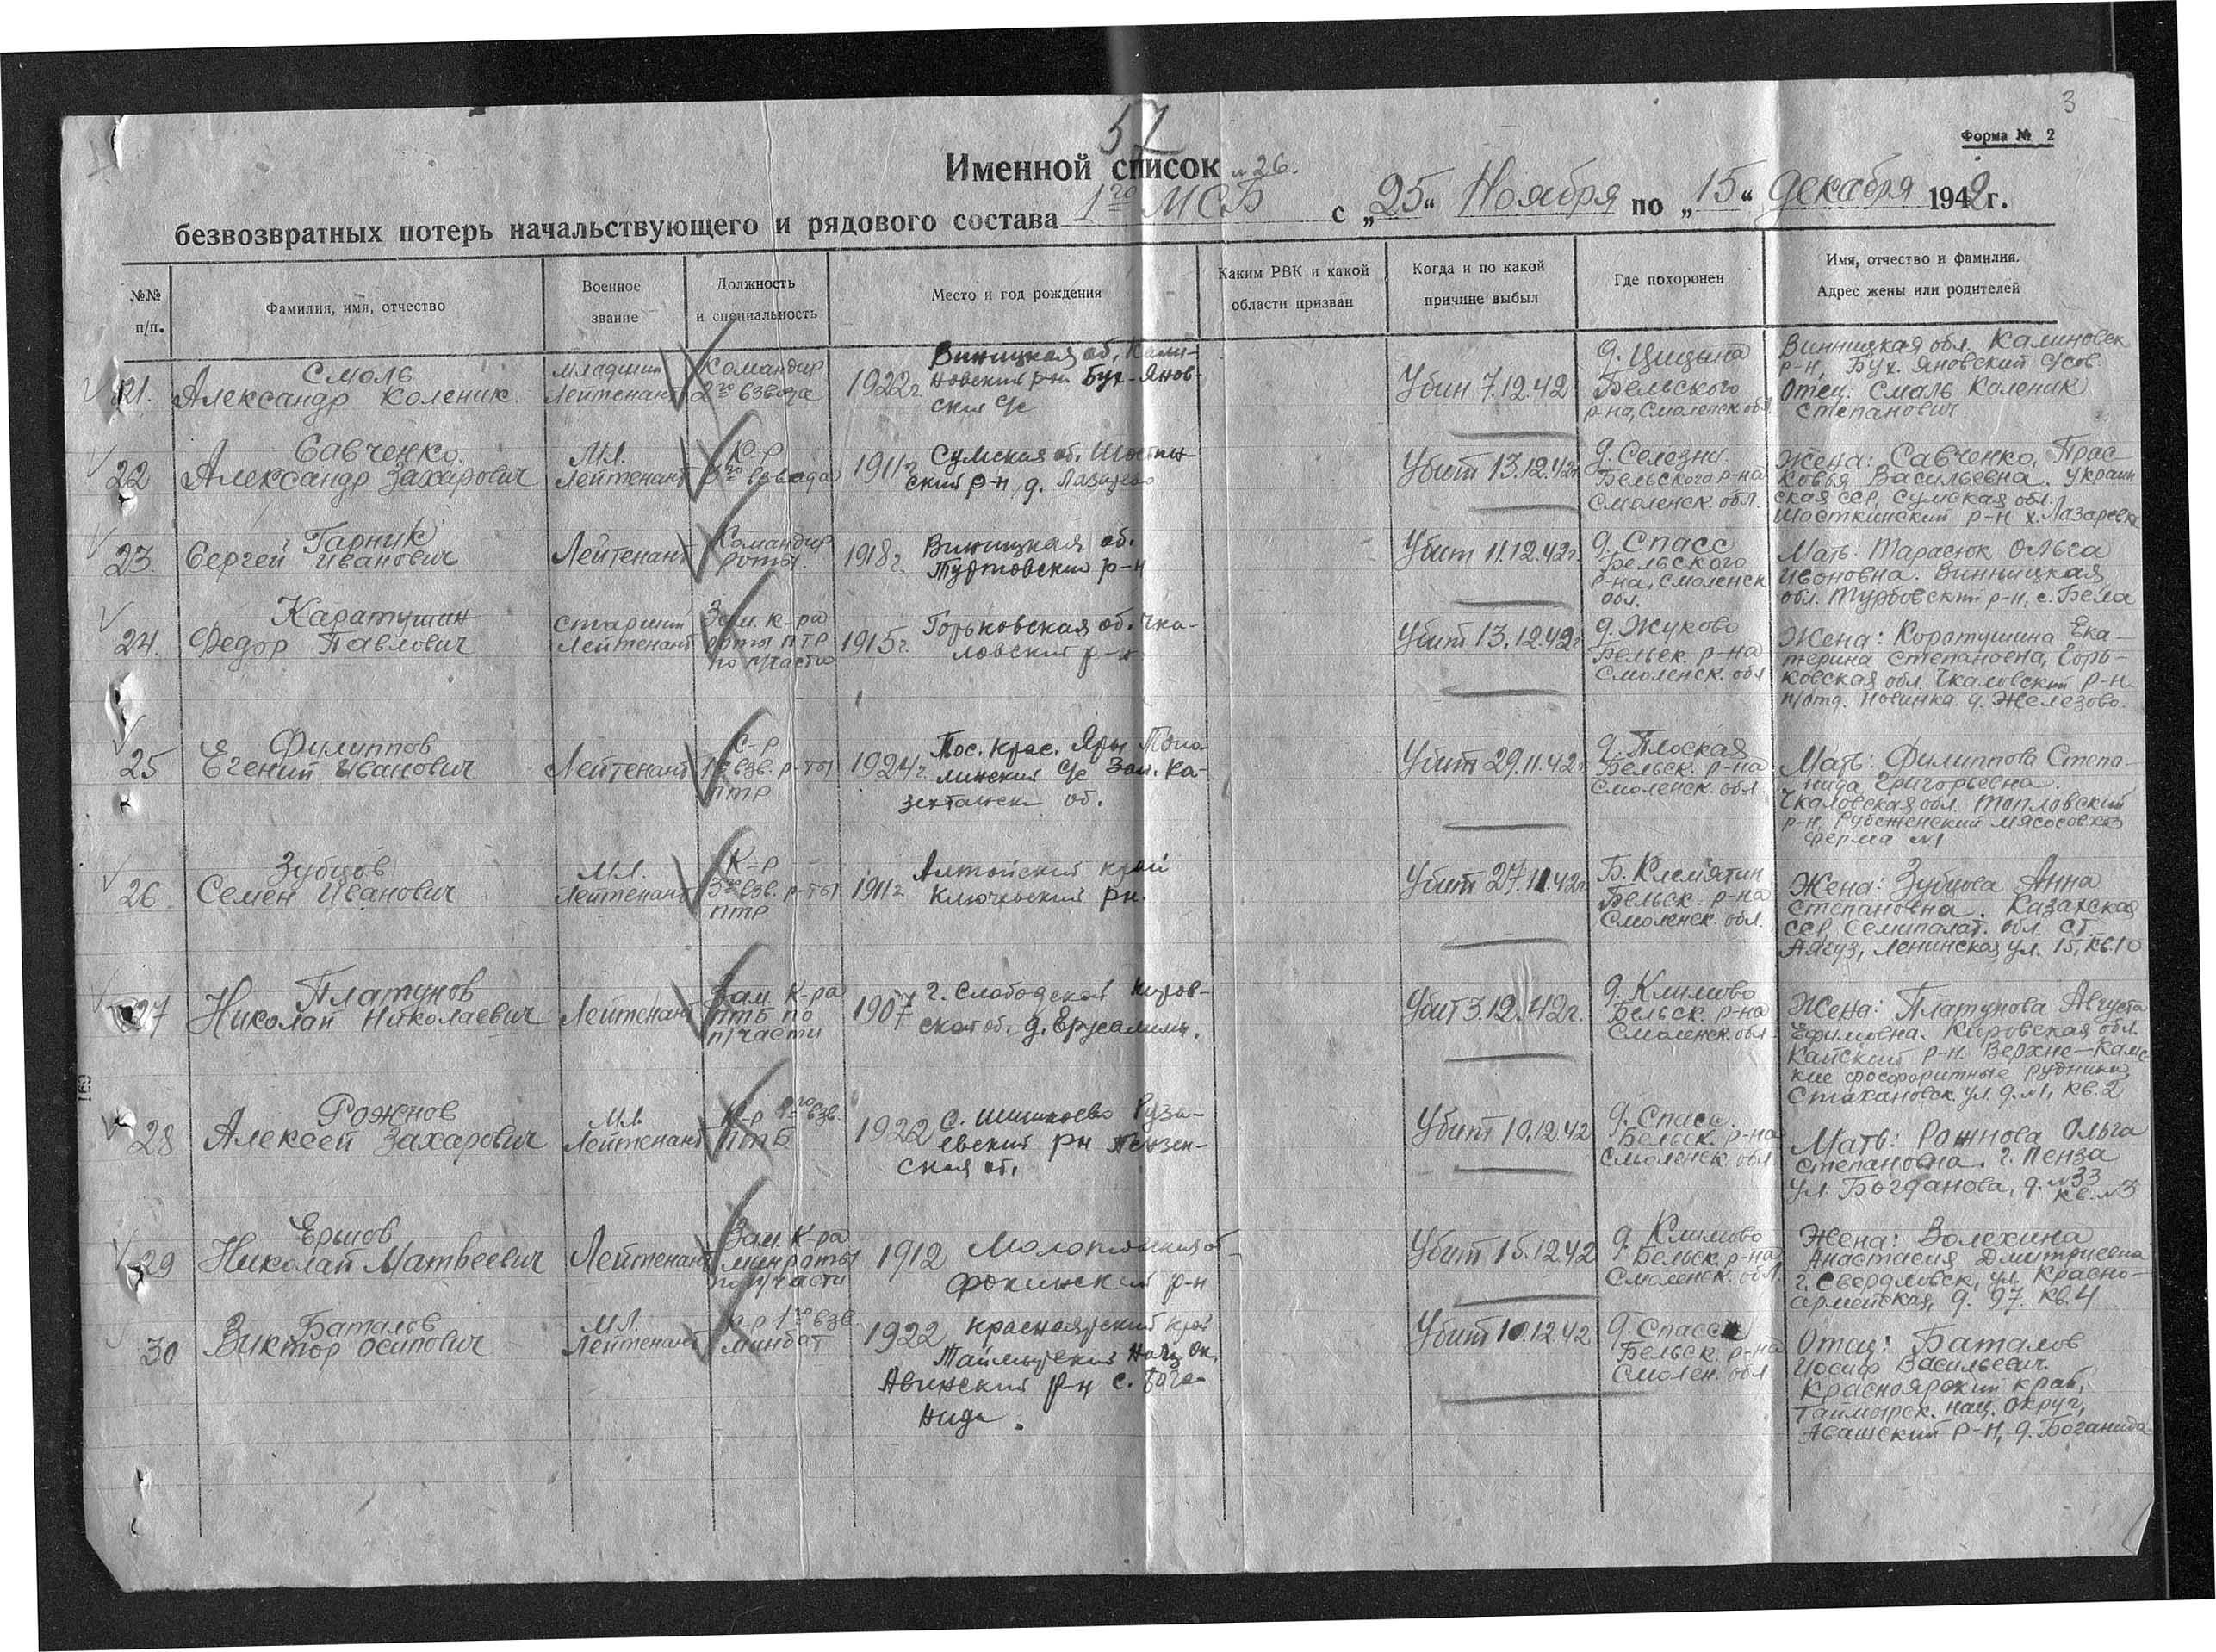 3
57
Форма № 2
Именной список №26.
безвозвратных потерь начальствующего и рядового состава 1го МСБ с „25“ Ноября по „15“ декабря 1942г.
№№ п/п.
Фамилия, имя, отчество
Военное звание
Должность и специальность
Место и год рождения
Каким РВК и какой области призван
Когда и по какой причине выбыл
Где похоронен
Имя, отчество и фамилия. Адрес жены или родителей
21.
Смоль
Александр Коленик.
Младший
Лейтенант
Командир
2го взвода
1922г.
Винницкая об, Кали-
новский рн. Бух-Янов-
ский с/с
Убит 7.12.42
д. Цицина
Бельского
р-на, Смоленск. обл.
Винницкая обл. Калиновск
р-н, Бух. Яновский с/сов.
Отец: Смаль Каленик
Степанович
22
Савченко.
Александр Захарович
Мл.
Лейтенант
К-р
взвода
1911г.
Сумская об. Шостин-
ский р-н, д. Лазарево
Убит 13.12.42г
д. Селезни
Бельского р-на
Смоленск. обл.
Жена: Савченко, Прас-
ковья Васильевна. Украин
ская сср, Сумская обл.
Шосткинский р-н х. Лазаревка
23.
Гарник
Сергей Иванович
Лейтенант
Командир
роты.
1918г.
Винницкая об.
Турбовский р-н
Убит 11.12.42г.
д. Спасс
Бельского
р-на, Смоленск
обл.
Мать: Тарасюк Ольга
Ивоновна. Винницкая
обл. Турбовский р-н, с. Бела
24.
Каратушин
Федор Павлович
Старший
Лейтенант
Зам. к-ра
роты ПТР
по п/части
1915г.
Горьковская об. Чка-
ловский р-н
Убит 13.12.42г
д. Жуково
Бельск. р-на
Смоленск. обл
Жена: Коратушина Ека-
терина Степановна, Горь-
ковская обл. Чкаловский р-н
п/отд. Новинка д. Железово.
25
Филиппов
Егений Иванович
Лейтенант
К-р
1го взв. р-ты
ПТР
1924г.
Пос. Крас. Яры
с/с Зап. Ка-
захтанск об.
Убит 29.11.42г
д. Плоская
Бельск. р-на
Смоленск. обл.
Мать: Филиппова Степа-
нида Григорьевна.
Чкаловская обл. Топловский
р-н, Рубеженский мясосовхоз
ферма №1
26
Зубцов
Семен Иванович
Мл.
Лейтенант
К-р
3го взв. р-ты
ПТР
1911г
Алтайский край
Ключевский рн.
Убит 27.11.42г.
Б. Клемятин
Бельск. р-на
Смоленск. обл.
Жена: Зубцова Анна
Степановна. Казахская
сср, Семипалат. обл. ст.
Аягуз, Ленинская ул. 15, кв.10
27
Платунов
Николай Николаевич
Лейтенант
Зам. К-ра
ПТБ по
п/части
1907
г. Слободской Киров-
ской об. д. Ерусалимы.
Убит 3.12.42г.
д. Климово
Бельск. р-на
Смоленск. обл.
Жена: Платунова Августа
Ефимовна. Кировская обл.
Кайский р-н. Верхне-Камс
кие фосфоритные рудники
Стахановск. ул. д. №1, кв.2
28
Рожнов
Алексей Захарович
Мл.
Лейтенант
К-р 1го взв.
ПТБ
1922
С. Шишкеево Руза-
евский рн Пензен-
ская об.
Убит 10.12.42
д. Спасс.
Бельск. р-на
Смоленск. обл
Мать: Рожнова Ольга
Степановна. г. Пенза
ул. Богданова, д. №33
кв. №3
29
Ершов
Николай Матвеевич
Лейтенант
Зам. К-ра
минроты
по п/части
1912
Молотовская об-
Фокинский р-н
Убит 15.12.42
д. Климово
Бельск. р-на
Смоленск. обл.
Жена: Волехина
Анастасия Дмитриевна
г. Свердловск, ул. Красно-
армейская, д. 97. кв.4
30
Баталов
Виктор Осипович
Мл.
Лейтенант
к-р 1го взв.
минбат
1922
Красноярский край
Таймырский Нац. Ок.
Авинский рн с. Бога-
нида.
Убит 10.12.42
д. Спасс
Бельск. р-на
Смолен. обл
Отец: Баталов
Иосиф Васильевич.
Красноярский край,
Таймырск. нац. округ,
Авашский р-н, д. Боганида